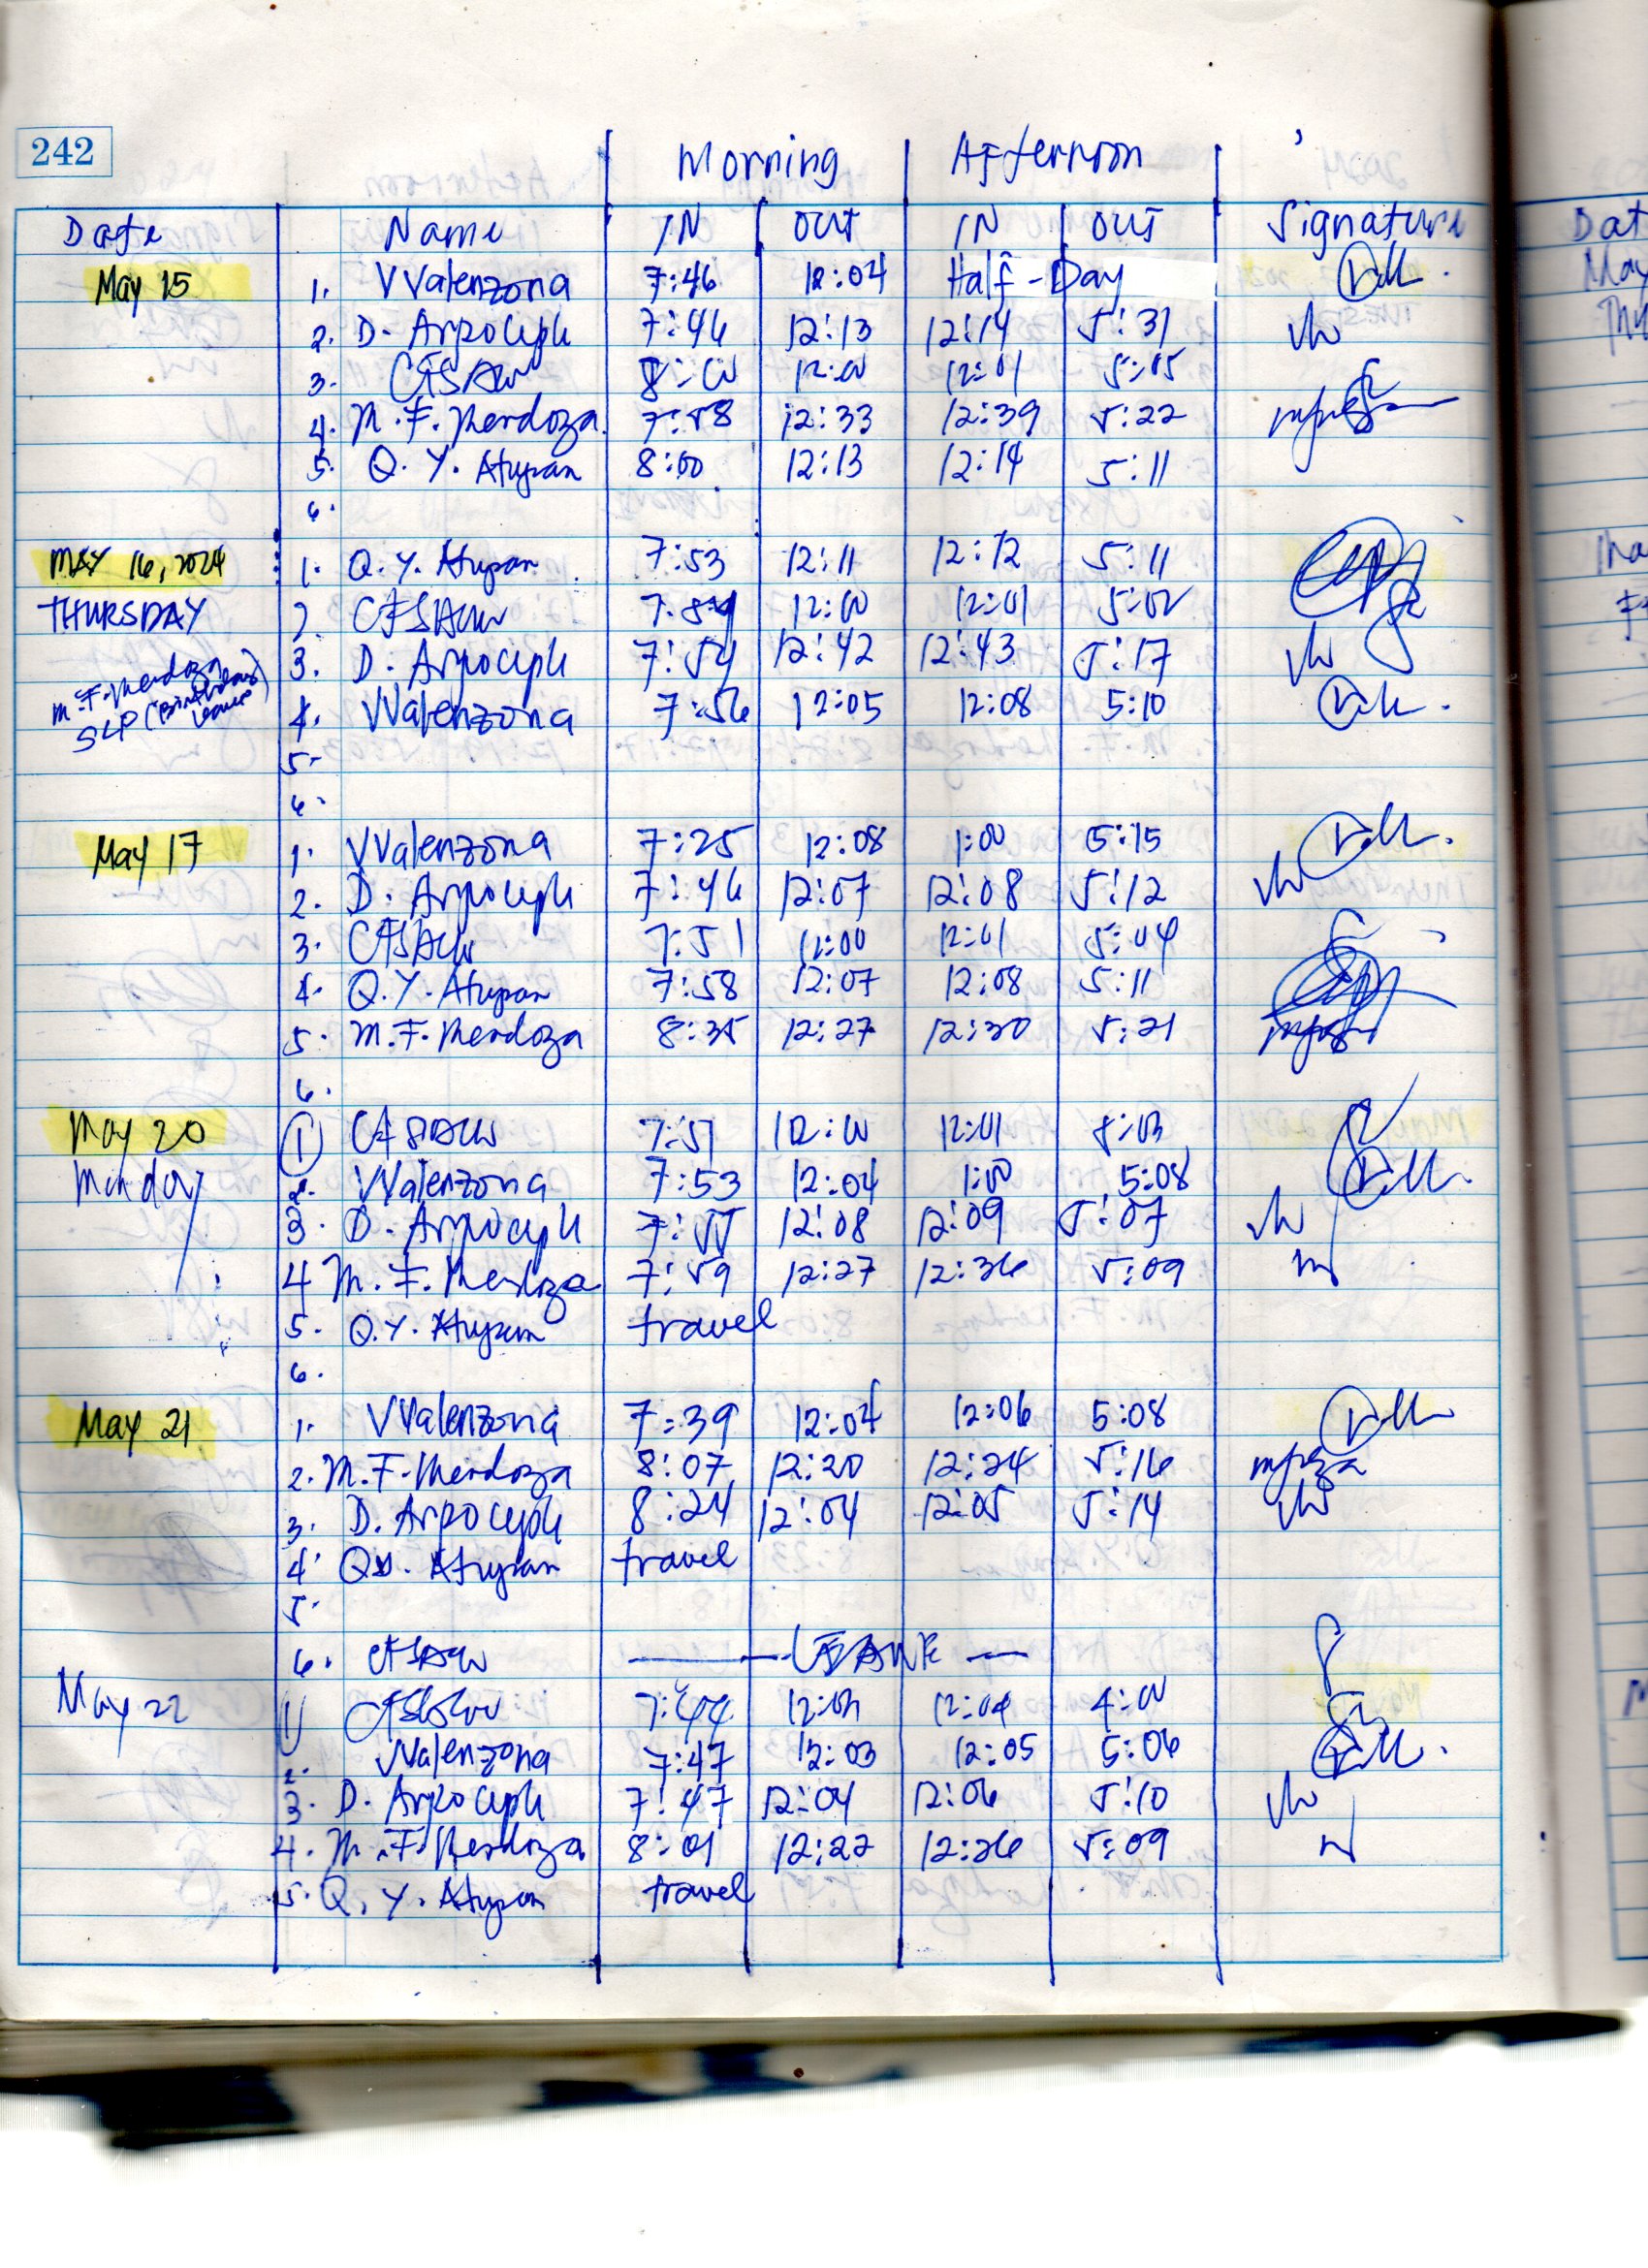 242
Morning Afternoon
Date Name IN OUT IN OUT Signature
May 15 1. VValenzona 7:46 12:04 Half-Day
2. D. Arpoceph 7:46 12:13 12:14 5:31
3. 8:00 12:00 12:01 5:05
4. M. F. Mendoza 7:58 12:33 12:39 5:22
5. Q. Y. Atupan 8:00 12:13 12:14 5:11
6.
MAY 16, 2024 1. Q. Y. Atupan 7:53 12:11 12:12 5:11
THURSDAY 2. 12:00 12:01 5:02
3. D. Arpoceph 7:54 12:42 12:43 5:17
M. F. Mendoza
SLP (Birthday
leave)
4. VValenzona 7:56 12:05 12:08 5:10
5.
6.
May 17 1. VValenzona 7:25 12:08 1:00 5:15
2. D. Arpoceph 7:46 12:07 12:08 5:12
3. 7:51 12:00 12:01 5:04
4. Q. Y. Atupan 7:58 12:07 12:08 5:11
5. M. F. Mendoza 8:35 12:27 12:30 5:21
6.
May 20 1 7:51 12:00 12:01
Monday 2. VValenzona 7:53 12:04 1:00 5:08
3. D. Arpoceph 7:55 12:08 12:09 5:07
4 M. F. Mendoza 7:59 12:27 12:36 5:09
5. Q. Y. Atupan travel
6.
May 21 1. VValenzona 7:39 12:04 12:06 5:08
2. M. F. Mendoza 8:07 12:20 12:24 5:16
3. D. Arpoceph 8:24 12:04 12:05 5:14
4. Atupan travel
5.
6. LEAVE
May 22 1 7:44 12:04 4:00
2. VValenzona 7:47 12:03 12:05 5:06
3. D. Arpoceph 7:47 12:04 12:06 5:10
4. M. F. Mendoza 8:01 12:22 12:26 5:09
5. Q. Y. Atupan travel